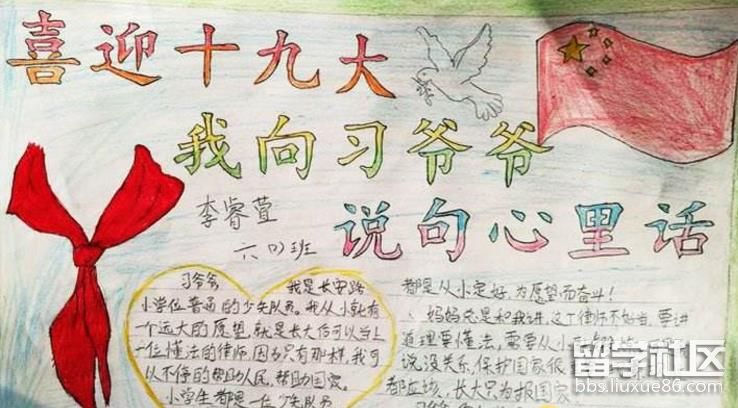 喜迎十九大
我向习爷爷
李睿萱
说句心里话
六(7)班
习爷爷 我是长安路
小学位普通的少先队员。我从小就有
一个远大的愿望,就是长大后可以当上
一位懂法的律师。因为只有那样,我可
以不停的帮助人民,帮助国家。
小学生都是一位少先队员
都是从小定好,为愿望而奋斗!
妈妈总是和我讲,这个律师不好当,要讲
道理要懂法,需要从小
说没关系,保护国家很
都应该,长大只为报国家
留学社区
bbs.liuxue86.com